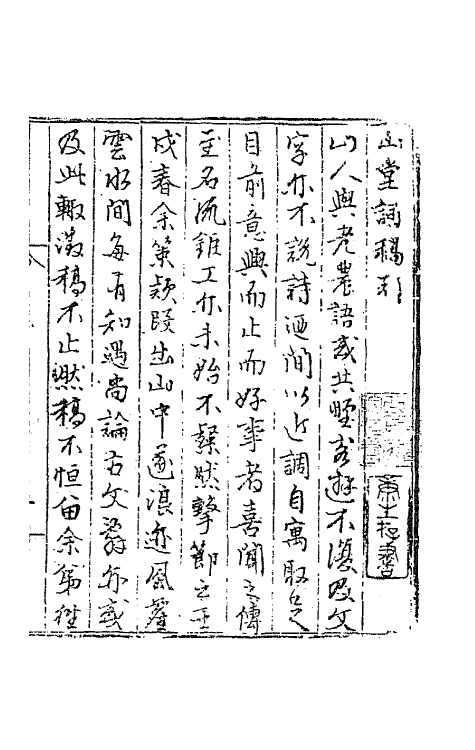 山堂詞稿引
山人與老農語或共野客遊不復及文
字亦不說詩酒間以近調自寓取足
目前意興而止而好事者喜聞之傳
至名流鉅工亦未始不粲然擊節之至
戌春余策款段出山中遂浪迹風塵
雲水間每有知遇尚論古文辭亦或
及此輙激稿不止燃稿不恒留余第往